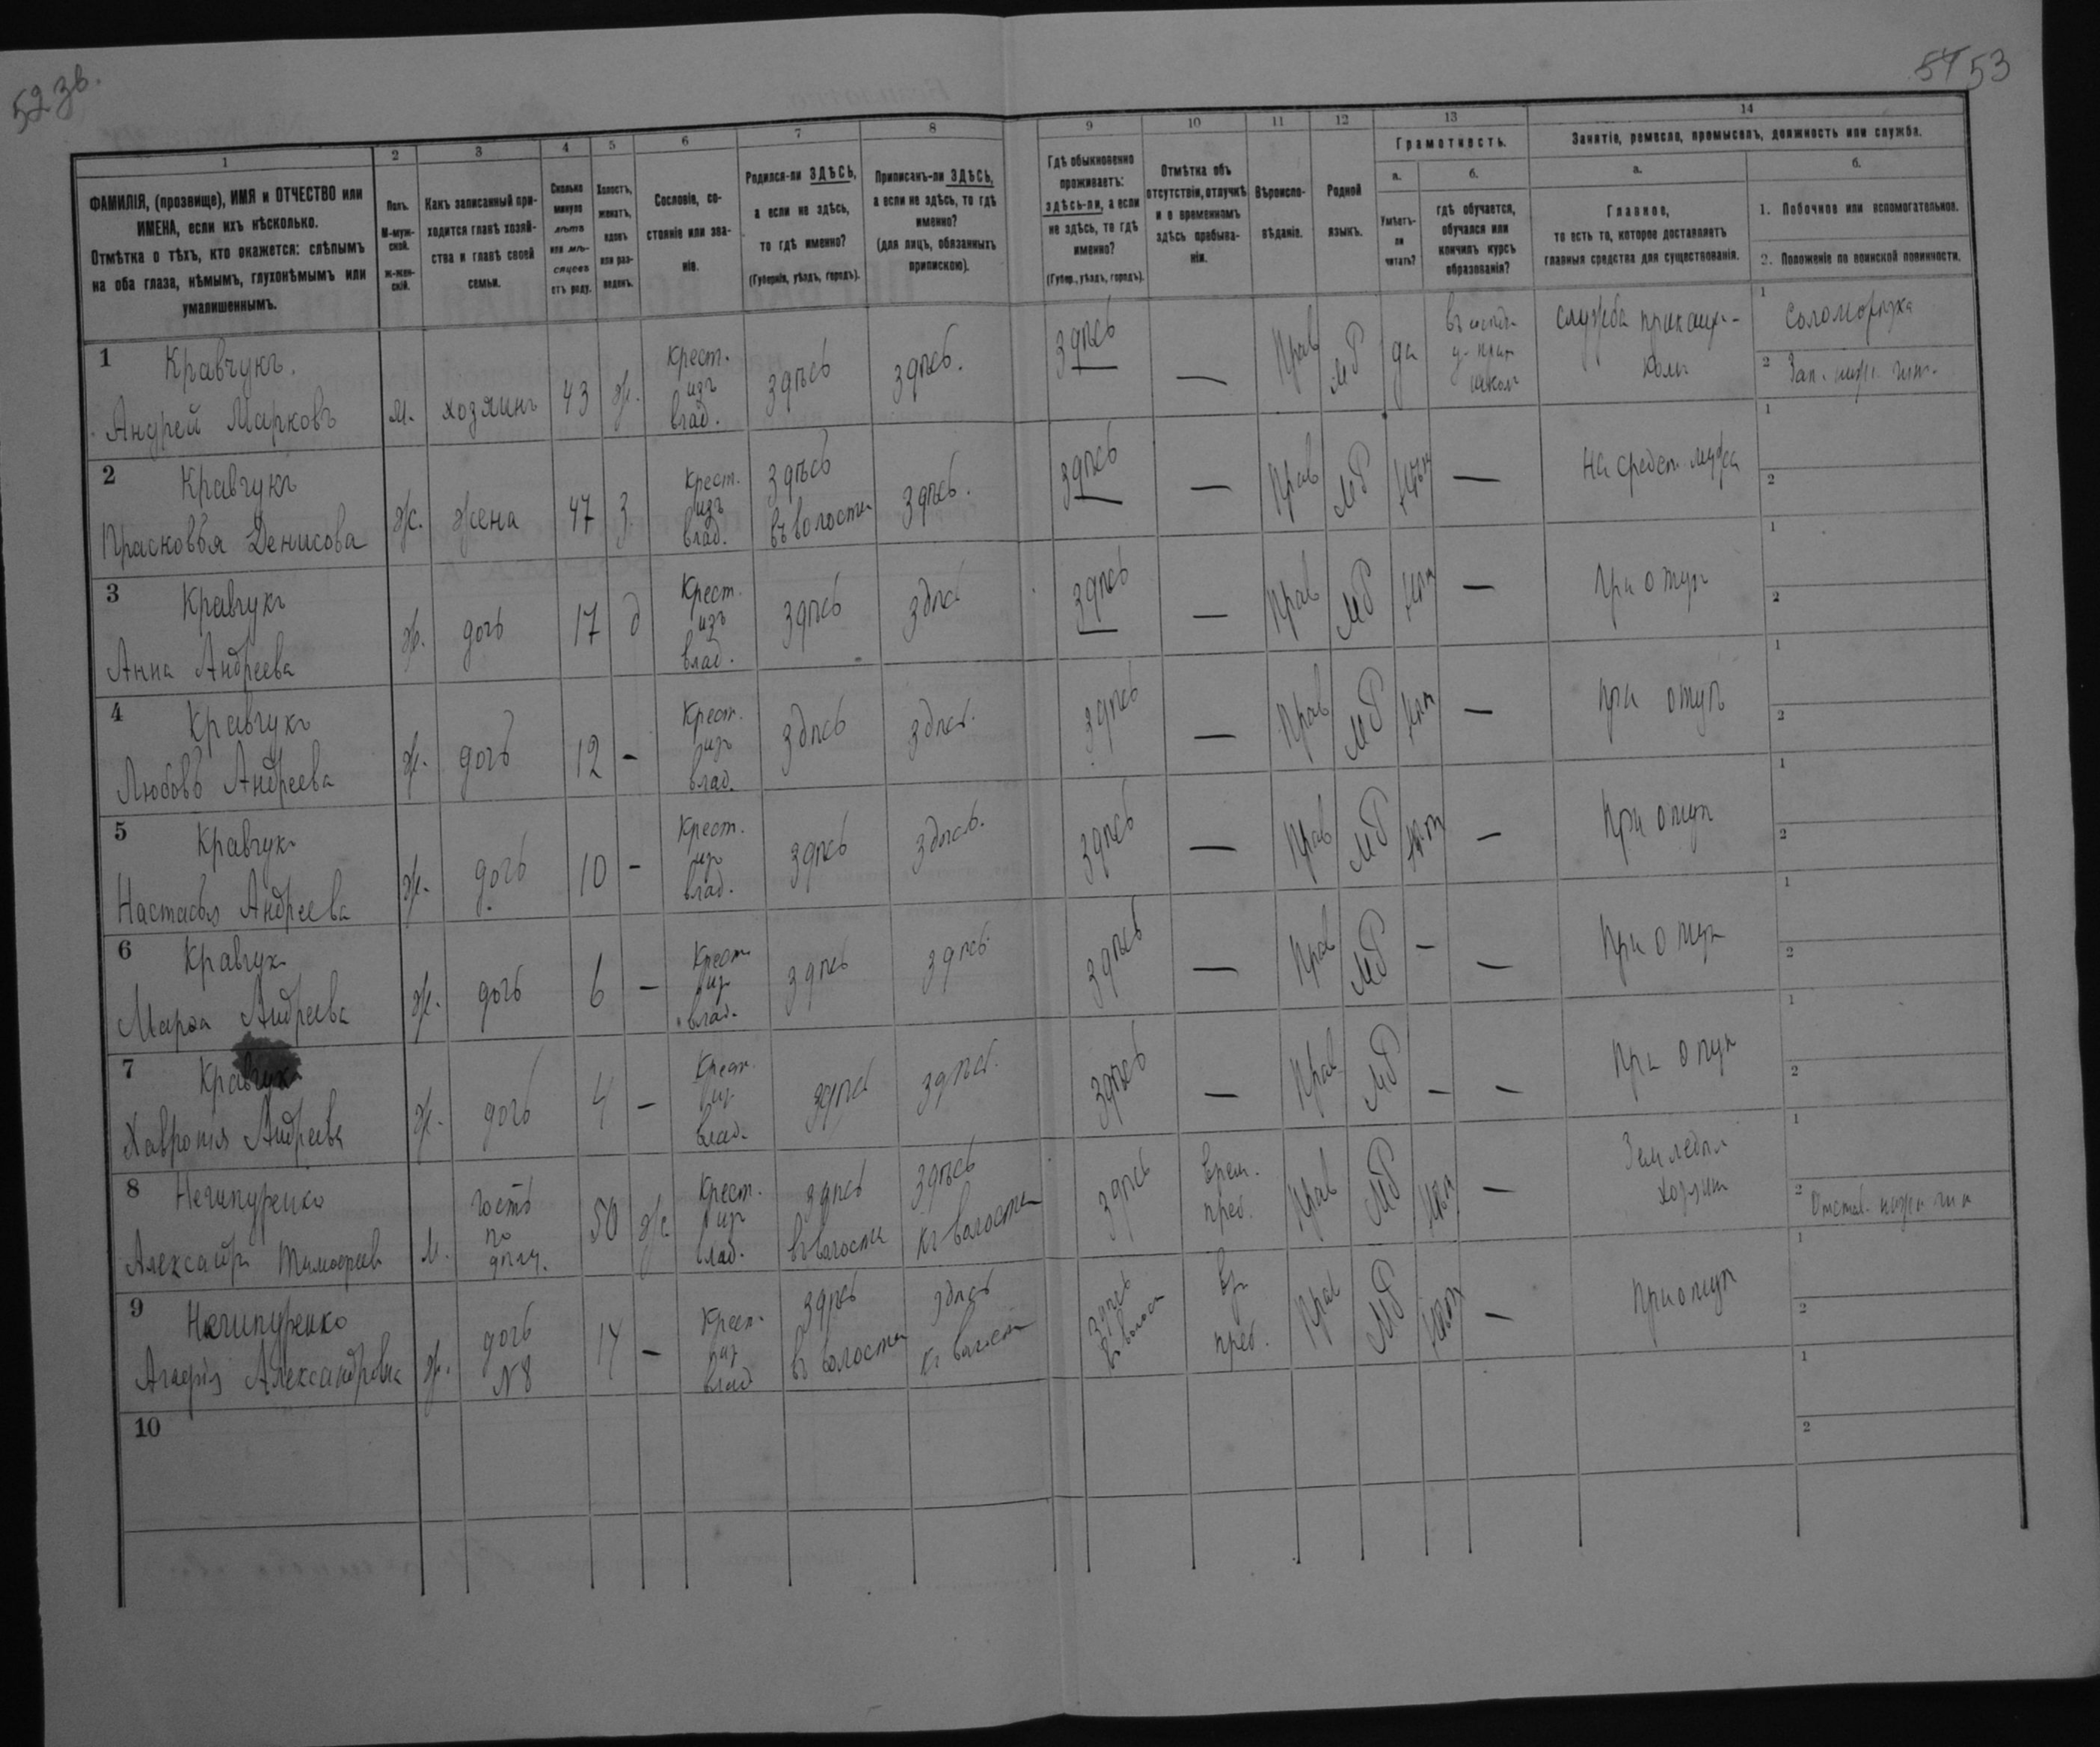 52 зв.
54 53
1
2
3
4
5
6
7
8
9
10
11
12
13
14
ФАМИЛІЯ, (прозвище), ИМЯ и ОТЧЕСТВО или
ИМЕНА, если ихъ нѣсколько.
Отмѣтка о тѣхъ, кто окажется: слѣпымъ
на оба глаза, нѣмымъ, глухонѣмымъ или
умалишеннымъ.
Полъ.
М-муж-
ской.
ж-жен-
скій.
Какъ записанный при-
ходится главѣ хозяй-
ства и главѣ своей
семьи.
Сколько
минуло
лѣтъ
или мѣ-
сяцевъ
отъ роду.
Холостъ,
женатъ,
вдовъ
или раз-
веденъ.
Сословіе, со-
стояніе или зва-
ніе.
Родился-ли ЗДѢСЬ,
а если не здѣсь,
то гдѣ именно?
(Губернія, уѣздъ, городъ).
Приписанъ-ли ЗДѢСЬ,
а если не здѣсь, то гдѣ
именно?
(для лицъ, обязанныхъ
припискою).
Гдѣ обыкновенно
проживаетъ:
здѣсь-ли, а если
не здѣсь, то гдѣ
именно?
(Губер., уѣздъ, городъ).
Отмѣтка объ
отсутствіи, отлучкѣ
и о временномъ
здѣсь пребыва-
ніи.
Вѣроиспо-
вѣданіе.
Родной
языкъ.
Грамотность.
а.
Умѣетъ-
ли
читать?
б.
гдѣ обучается,
обучался или
кончилъ курсъ
образованія?
Занятіе, ремесло, промыселъ, должность или служба.
а.
Главное,
то есть то, которое доставляетъ
главныя средства для существованія.
б.
1. Побочное или вспомогательное.
2. Положеніе по воинской повинности.
1 Кравчукъ.
Андрей Марковъ
м. хозяинъ 43 ж.
Крест.
изъ
влад.
здѣсь здѣсь. здѣсь — Прав МР да
служба
1
2 Зап. нижн. чин.
2 Кравчукъ
Прасковья Денисова
ж. жена 47 з.
Крест.
изъ
влад.
здѣсь
въ волости
здѣсь. здѣсь — Прав МР нѣт — На средст. мужа
1
2
3 Кравчукъ
Анна Андреева
ж. дочь 17 д
Крест.
изъ
влад.
здѣсь здѣсь здѣсь — Прав МР нѣт — При отцѣ
1
2
4 Кравчукъ
Любовь Андреева
ж. дочь 12 -
Крест.
изъ
влад.
здѣсь здѣсь. здѣсь — Прав МР нѣт — При отцѣ
1
2
5 Кравчукъ
Настасья Андреева
ж. дочь 10 -
Крест.
изъ
влад.
здѣсь здѣсь. здѣсь — Прав МР нѣт — При отцѣ
1
2
6 Кравчукъ
Марѳа Андреева
ж. дочь 6 -
Крест.
изъ
влад.
здѣсь здѣсь. здѣсь — Прав МР — — При отцѣ
1
2
7 Кравчукъ
Хавронія Андреева
ж. дочь 4 -
Крест.
изъ
влад.
здѣсь здѣсь. здѣсь — Прав МР — — При отцѣ
1
2
8 Нечипуренко
Александръ Тимофеев
м.
гость
по
50 ж
Крест.
изъ
влад.
здѣсь
въ волости
здѣсь
къ волости
здѣсь
врем.
преб.
Прав МР нѣт —
Земледѣл
хозяин
1
2 Отстав. нижн чин
9 Нечипуренко
Агафія Александровна
ж.
дочь
№ 8
14 -
Крест.
изъ
влад
здѣсь
въ волости
здѣсь
къ волости
здѣсь
в волост
вр
преб.
Прав МР нѣт — При отцѣ
1
2
10
1
2